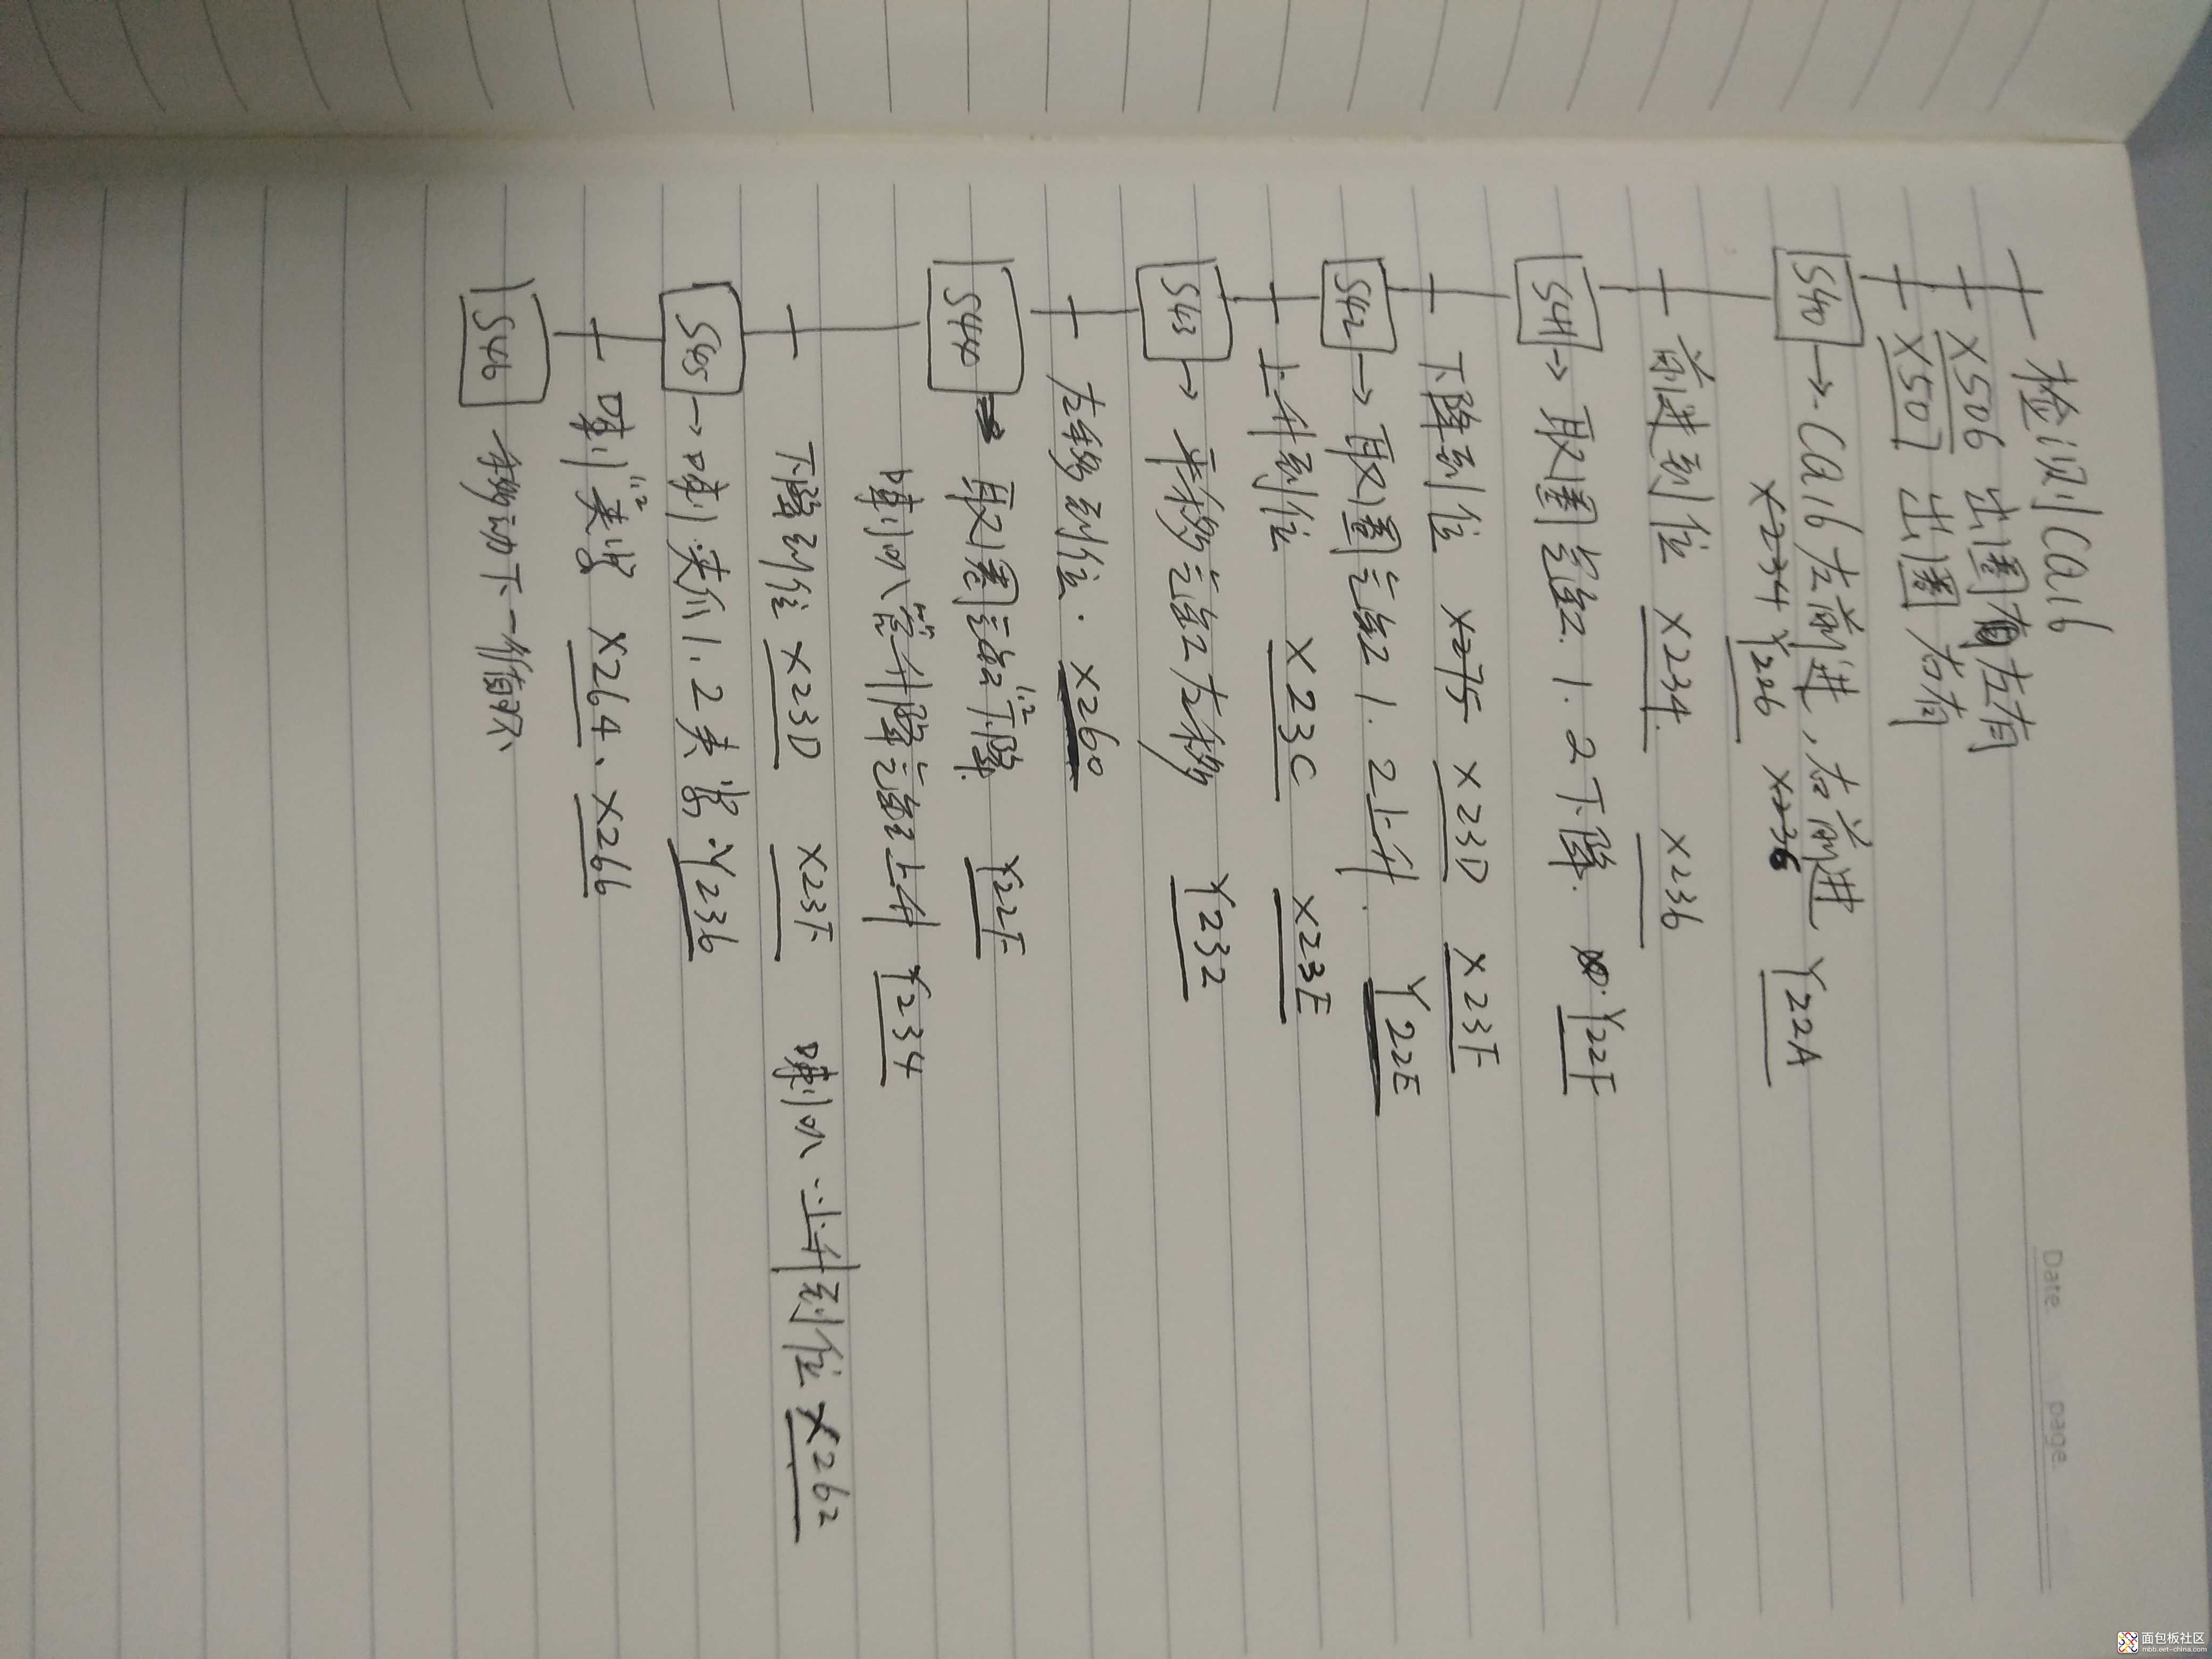 检测 Ca16
X506 出圈 左有
X507 出圈 右有
S40 → Ca16 左前进,右前进 Y22A
X234 Y226 X236
前进到位 X234 X236
S41 → 取圈气缸 1. 2下降. Y22F
下降到位 X275 X23D X23F
S42 → 取圈气缸 1. 2上升. Y22E
上升到位 X23C X23E
S43 → 平移气缸左移 Y232
左移到位. X260
S44 取圈气缸1.2下降. Y22F
喇叭 升降气缸上升 Y234
下降到位 X23D X23F 喇叭 上升到位 X262
S45 → 喇 夹爪 1. 2 夹紧 Y236
喇 1.2 夹紧 X264、X266
S46 移动下一
Date page.
面包板社区
mbb.eet-china.com